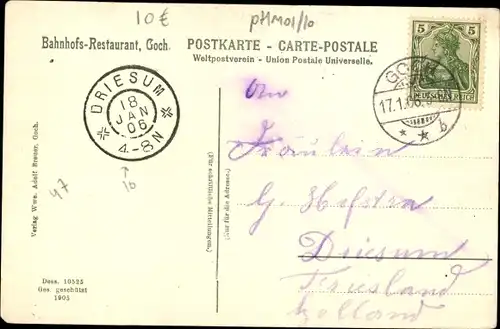 10 €
pHM01/10
Bahnhofs-Restaurant, Goch.
POSTKARTE - CARTE-POSTALE
Weltpostverein - Union Postale Universelle.
5 5
DEUTSCHES REICH
GOCH
17.1.06.
* * b
DRIESUM
18
JAN
06
4-8N
10
47
An
Fräulein
G. Hofstra
Driesum
Friesland
Holland
(Für schriftliche Mitteilungen.)
(Nur für die Adresse.)
Verlag Wwe. Adolf Bremer, Goch.
Dess. 10525
Ges. geschützt
1905